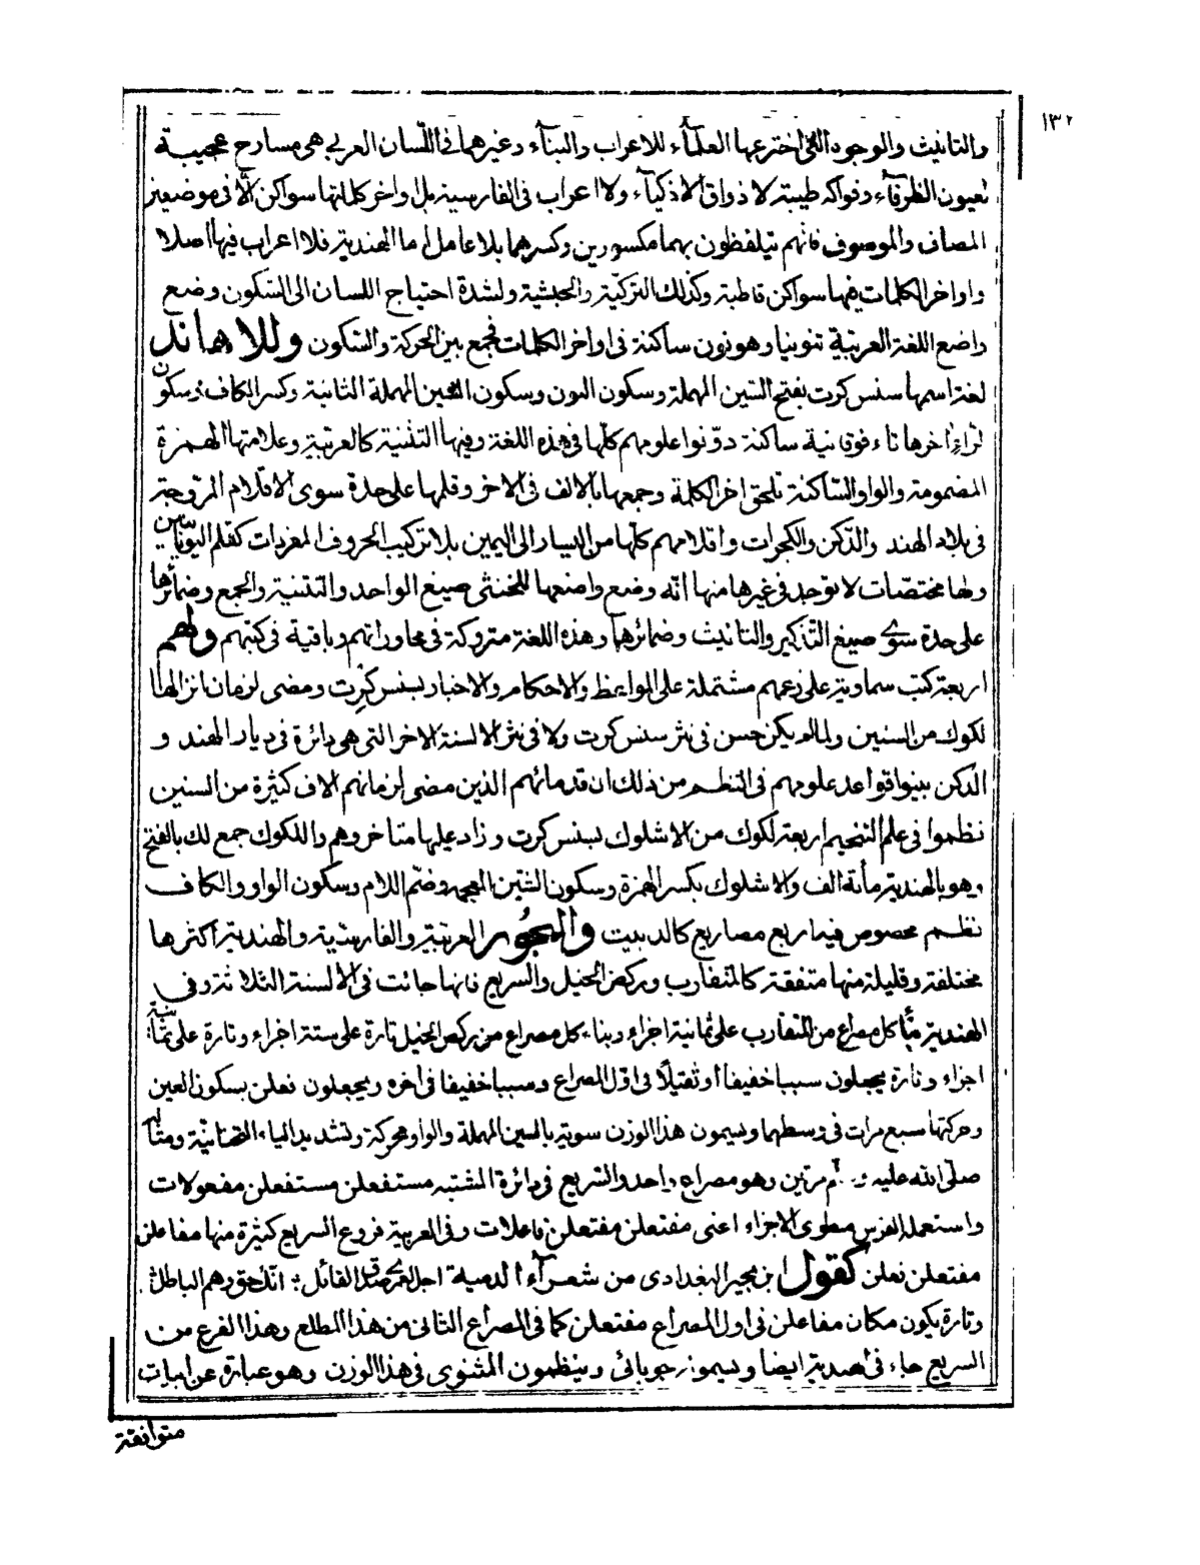 ١٣٢
والتانيث والوجوه التي اخترعها العلمآء للاعراب والبنآء وغيرهما في اللّسان العربي هي مسارح عجيبة
لعيون الظرفآء وفواكه طيبة لاذواق الاذكيآء ولا اعراب في الفارسية بل اواخر كلماتها سواكن الّا في موضعين
المضاف والموصوف فانهم يتلفظون بهما مكسورين وكسرهما بلا عامل اما الهندية فلا اعراب فيها اصلا
واواخر الكلمات فيها سواكن قاطبة وكذلك التركيّة والحبشية ولشدة احتياج اللسان الى السّكون وضع
واضع اللغة العربيّة تنوينا وهو نون ساكنة في اواخر الكلمات فجمع بين الحركة والسّكون وللاهاند
لغة اسمها سنسكرت بفتح السّين المهملة وسكون النون وسكون السّين المهملة الثانية وكسر الكاف وسكون
الراء اخرها تاء فوقانية ساكنة دوّنوا علومهم كلّها في هذه اللغة وفيها التثنية كالعربيّة وعلامتها الهمزة
المضمومة والواو السّاكنة تلحق اخر الكلمة وجمعها بالالف في الاخر وقلمها على حدة سوى الاقلام المروّجة
في بلاد الهند والدّكن والكجرات واقلامهم كلّها من اليسار الى اليمين بلا تركيب الحروف المفردات كقلم اليونانيين
ولها مختصّات لا توجد في غيرها منها انّه وضع واضعها للخنثى صيغ الواحد والتثنية والجمع وضمائرها
على حدة سوى صيغ التّذكير والتانيث وضمائرهما وهذه اللغة متروكة في محاوراتهم وباقية في كتبهم ولهم
اربعة كتب سماوية على زعمهم مشتملة على المواعظ والاحكام والاخبار بسنسكرت ومضى لزمان انزالها
لكوك من السنين ولما لم يكن حسن في نثر سنسكرت ولا في نثر الالسنة الاخر التي هي دائرة في ديار الهند و
الدّكن بينوا قواعد علومهم في النظم من ذلك ان قدمائهم الذين مضى لزمانهم الاف كثيرة من السنين
نظموا في علم التنجيم اربعة لكوك من الاشلوك بسنسكرت وزاد عليها متاخروهم واللكوك جمع لك بالفتح
وهو بالهندية مأية الف والاشلوك بكسر الهمزة وسكون الشّين المعجمة وضمّ اللام وسكون الواو والكاف
نظم مخصوص فيه اربع مصاريع كالدبيت والبحُور العربيّة والفارسيّة والهندية اكثرها
مختلفة وقليلة منها متفقة كالمتقارب وركض الخيل والسريع فانها جائت في الالسنة الثلاثة وفي
الهندية بنآ كل مصراع من المتقارب على ثمانية اجزاء وبناء كل مصراع من ركض الخيل تارة على ستة اجزاء وتارة على ثمانية
اجزاء وتارة يجعلون سببا خفيفا او ثقيلًا في اوّل المصراع وسببا خفيفا في اخره ويجعلون فعلن بسكون العين
وحركتها سبع مرات في وسطهما ويسمون هذا الوزن سوية بالسين المهملة والواو محركة وتشديد الياء التحتانيّة ومثاله
صلّى الله عليه و م مرتين وهو مصراع واحد والسّريع في دائرة المشتبه مستفعلن مستفعلن مفعولات
واستعمله الفرس مطوي الاجزاء اعني مفتعلن مفتعلن فاعلات وفي العربية فروع السريع كثيرة منها مفاعلن
مفتعلن فعلن كقول ابن مجير البغدادي من شعرآء الدمية اجل العمر صدق القائل انك حق وهم الباطل
وتارة يكون مكان مفاعلن في اول المصراع مفتعلن كما في المصراع الثاني من هذا المطلع وهذا الفرع من
السريع جاء في الهندية ايضا ويسمونه جوپائي وينظمون المثنوي في هذا الوزن وهو عبارة عن ابيات
متوافقة